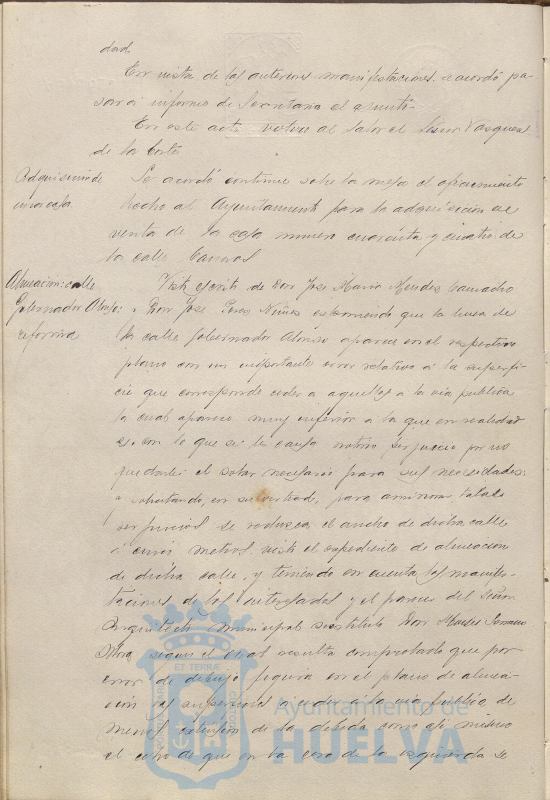 dad.
En vista de las anteriores manifestaciones se acordó pa-
sara a informe de Secretaría el asunto.
En este acto volvió al Salon el Señor Vazquez
de la Corte
Adquisición de
una casa
Se acordó continue sobre la mesa el ofrecimiento
hecho al Ayuntamiento para la adquisición en
venta de la casa numero cuarenta y cuatro de
la calle
Alineación: calle
Gobernador Alonso:
reforma
Visto escrito de Don Jose Maria Mendez Camacho
y Don Jose Perez Nuñez exponiendo que la linea de
la calle Gobernador Alonso aparece en el respectivo
plano con un importante error relativo a la superfi-
cie que corresponde ceder a aquellos a la via publica
la cual aparece muy inferior a la que en realidad
es, con lo que se les causa notorio perjuicio por no
quedarles el solar necesario para sus necesidades:
y solicitando, en su virtud, para aminorar tales
perjuicios se reduzca el ancho de dicha calle
a metros, visto el expediente de alineacion
de dicha calle, y teniendo en cuenta las manifes-
taciones de los interesados y el parecer del Señor
Arquitecto municipal sustituto Don Moises Serrano
Mora segun el cual resulta comprobado que por
error de dibujo figura en el plano de aline-
ación las superficies a ceder a la via publica de
menor extensión de la debida como asi mismo
el echo de que en la acera de la izquierda se
Ayuntamiento de
HUELVA